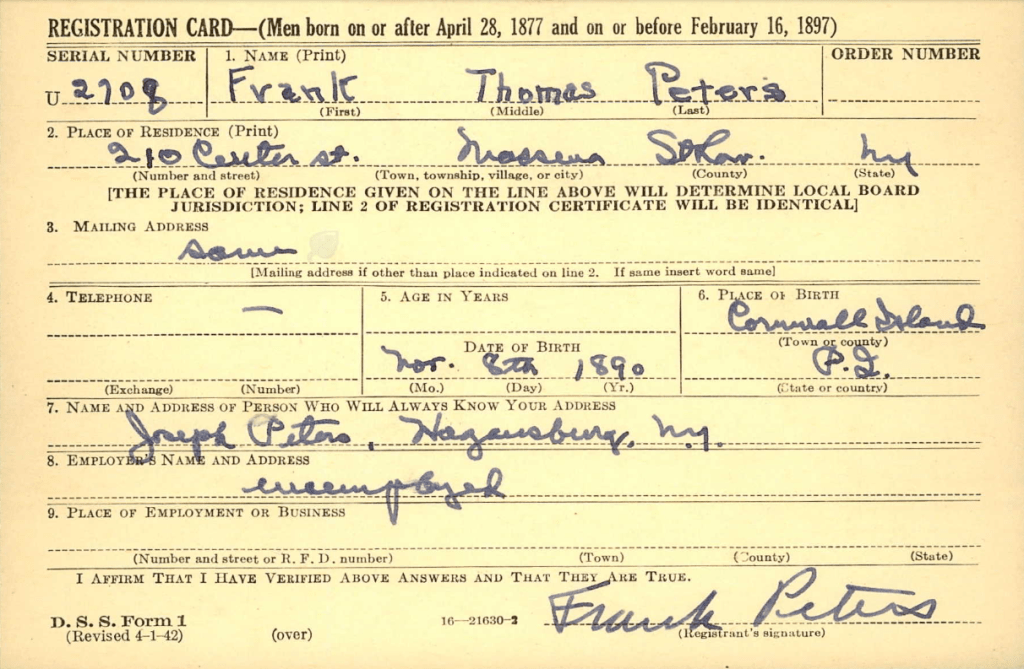 REGISTRATION CARD—(Men born on or after April 28, 1877 and on or before February 16, 1897)
SERIAL NUMBER 1. NAME (Print) ORDER NUMBER
U 2708 Frank Thomas Peters
(First) (Middle) (Last)
2. PLACE OF RESIDENCE (Print)
210 Center st. Massena St Law. Ny
(Number and street) (Town, township, village, or city) (County) (State)
[THE PLACE OF RESIDENCE GIVEN ON THE LINE ABOVE WILL DETERMINE LOCAL BOARD
JURISDICTION; LINE 2 OF REGISTRATION CERTIFICATE WILL BE IDENTICAL]
3. MAILING ADDRESS
same
[Mailing address if other than place indicated on line 2. If same insert word same]
4. TELEPHONE 5. AGE IN YEARS 6. PLACE OF BIRTH
— Cornwall Island
DATE OF BIRTH (Town or county)
Nov. 8th 1890 P.I.
(Exchange) (Number) (Mo.) (Day) (Yr.) (State or country)
7. NAME AND ADDRESS OF PERSON WHO WILL ALWAYS KNOW YOUR ADDRESS
Joseph Peters, Hogansburg, N.y.
8. EMPLOYER'S NAME AND ADDRESS
unemployed
9. PLACE OF EMPLOYMENT OR BUSINESS
(Number and street or R. F. D. number) (Town) (County) (State)
I AFFIRM THAT I HAVE VERIFIED ABOVE ANSWERS AND THAT THEY ARE TRUE.
Frank Peters
D. S. S. Form 1 16—21630-2 (Registrant's signature)
(Revised 4-1-42) (over)